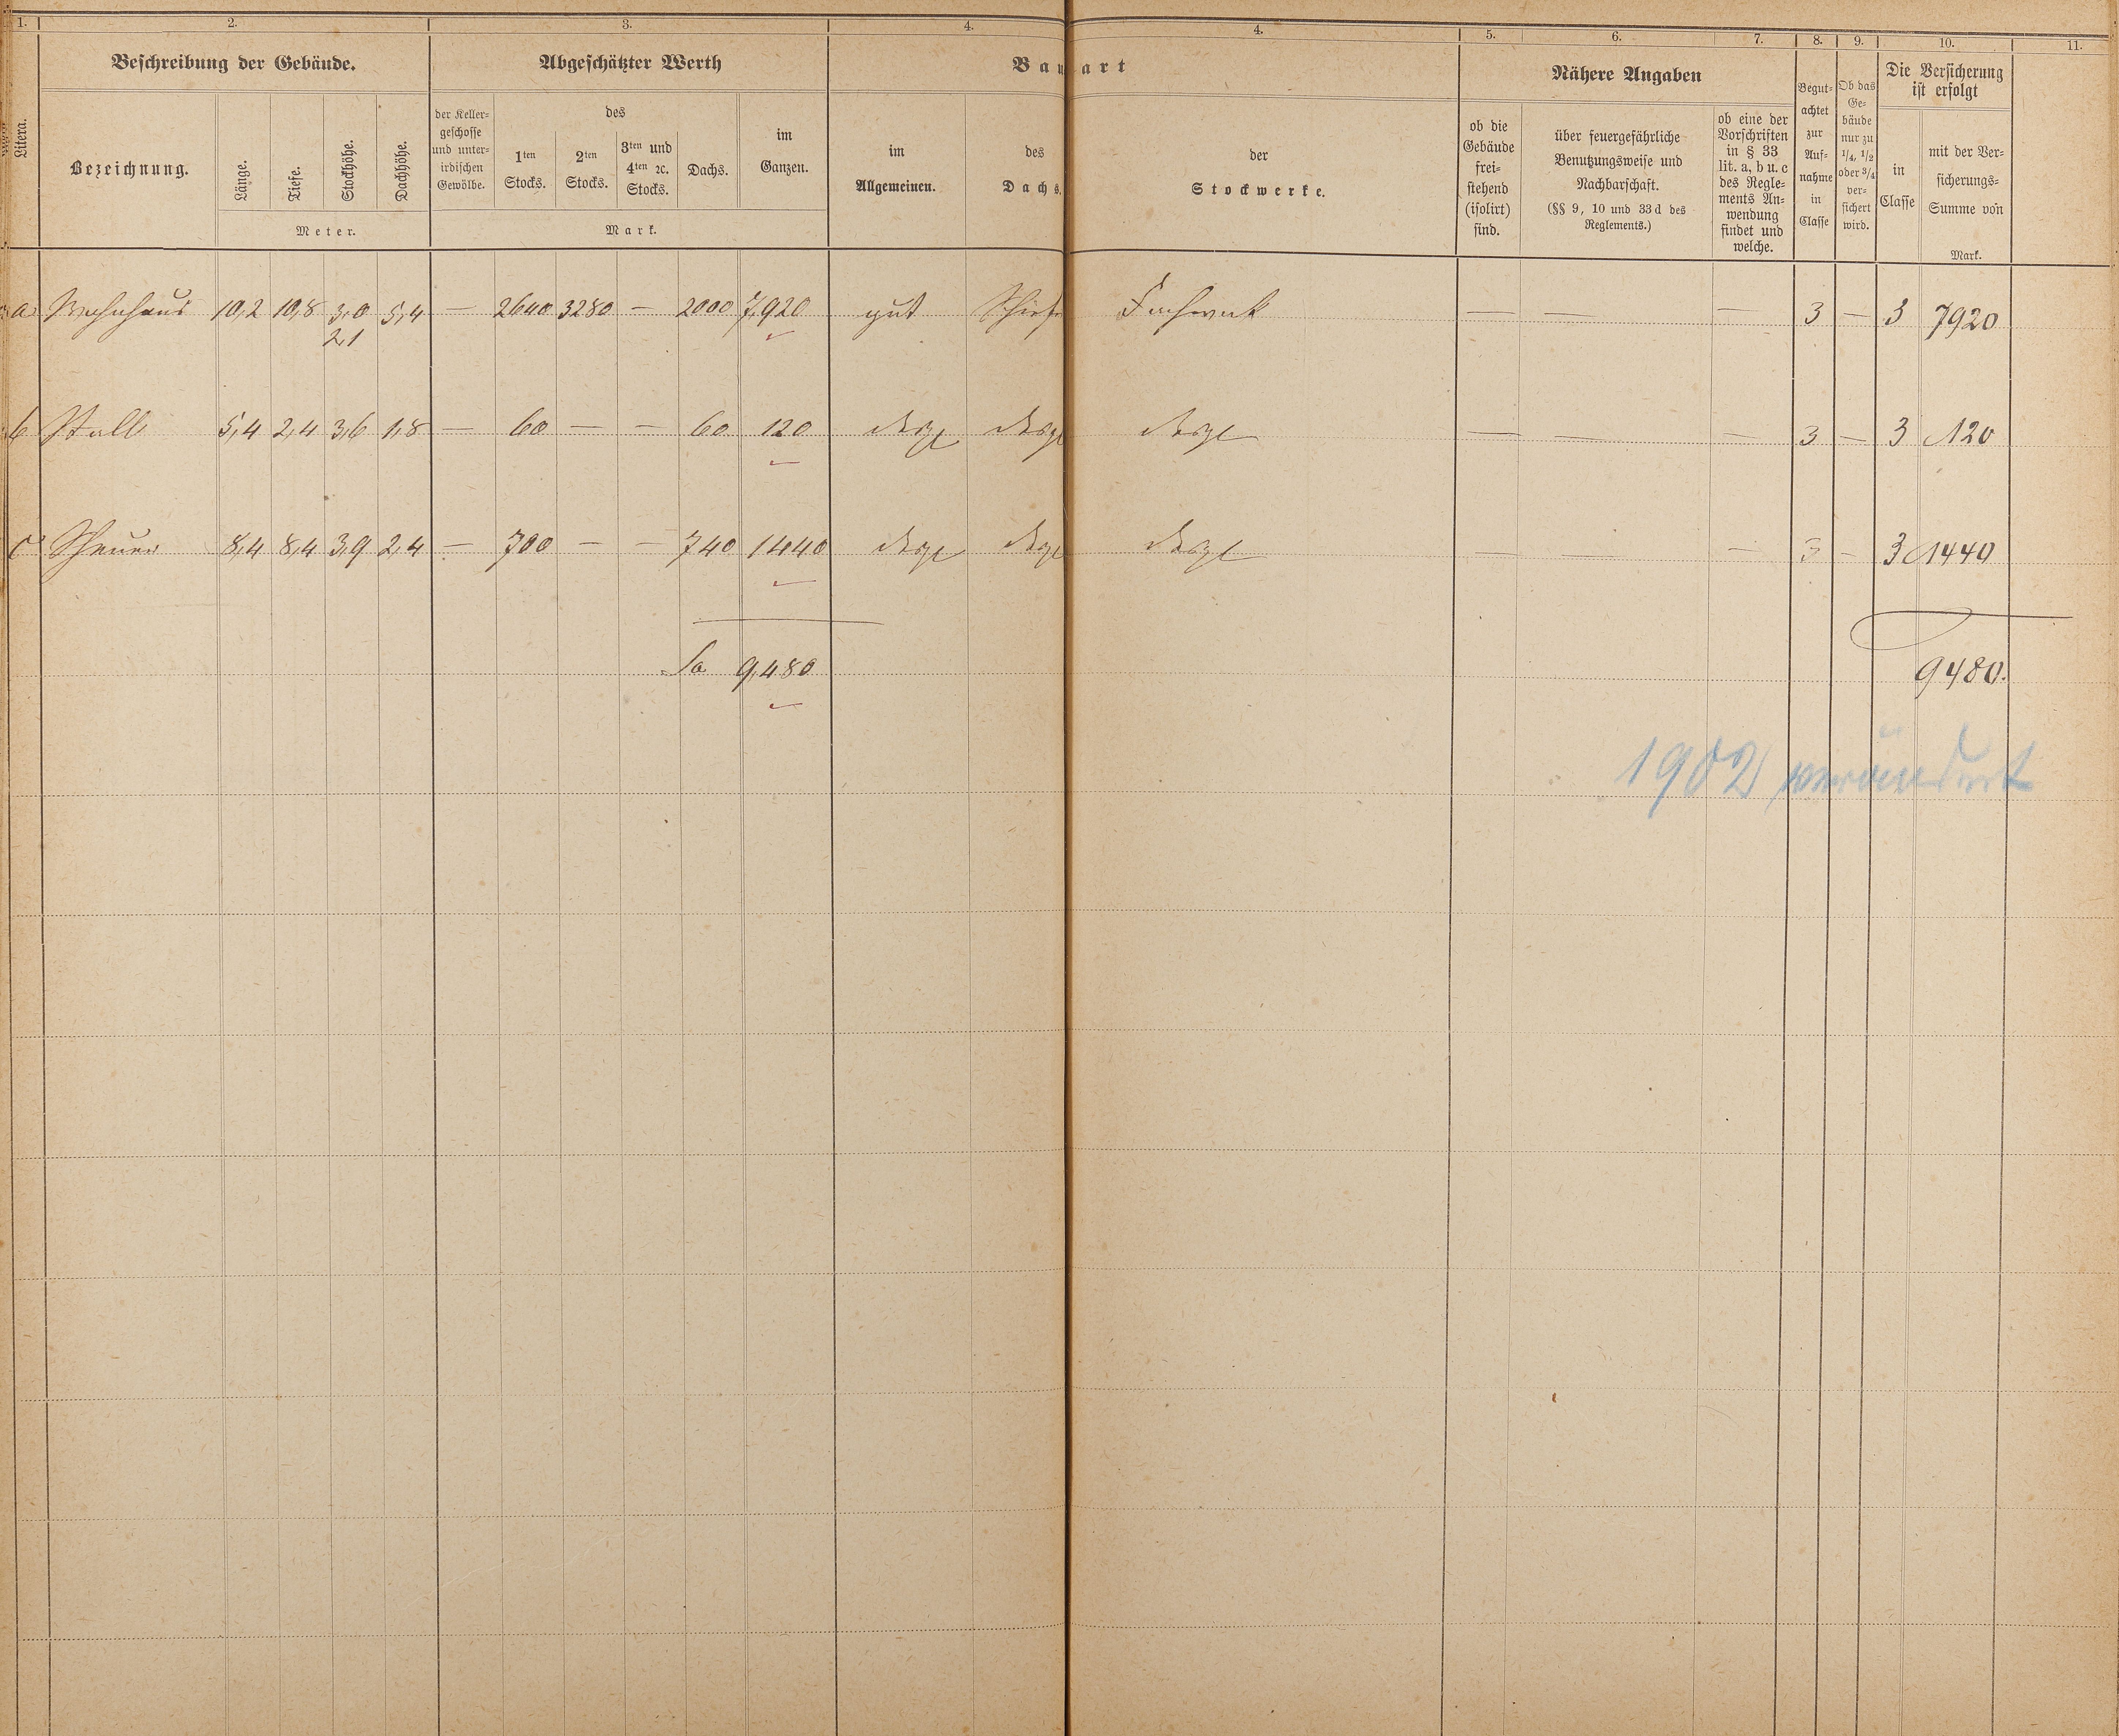 1. 2. 3. 4. 4. 5. 6. 7. 8. 9. 10. 11.
Beschreibung der Gebäude. Abgeschätzter Werth Bauart Nähere Angaben Die Versicherung
ist erfolgt
Litera.
Bezeichnung.
Länge.
Tiefe.
Stockhöhe.
Dachhöhe.
Meter.
der Keller-
geschosse
und unter-
irdischen
Gewölbe.
des
1ten
Stocks.
2ten
Stocks.
3ten und
4ten ꝛc.
Stocks.
Dachs.
im
Ganzen.
Mark.
im
Allgemeinen.
des
Dachs.
der
Stockwerke.
ob die
Gebäude
frei-
stehend
(isolirt)
sind.
über feuergefährliche
Benutzungsweise und
Nachbarschaft.
(§§ 9, 10 und 33 d des
Reglements.)
ob eine der
Vorschriften
in § 33
lit. a, b u. c
des Regle-
ments An-
wendung
findet und
welche.
Begut-
achtet
zur
Auf-
nahme
in
Classe
Ob das
Ge-
bäude
nur zu
1/4, 1/2
oder 3/4
ver-
sichert
wird.
in
Classe
mit der Ver-
sicherungs-
Summe von
Mark.
a Wohnhaus 10,2 10,8 3,0 5,4 — 2640 3280 — 2000 7,920 gut Schief Fachwerk — — — 3 — 3 7920
2,1
b Stall 5,4 2,4 3,6 1,8 — 60 — — 60 120 desgl desgl desgl — — — 3 — 3 120
c Scheuer 8,4 8,4 3,9 2,4 — 700 — — 740 1440 desgl desgl desgl — — — 3 — 3 1440
Sa 9,480 9480.
1902 verändert